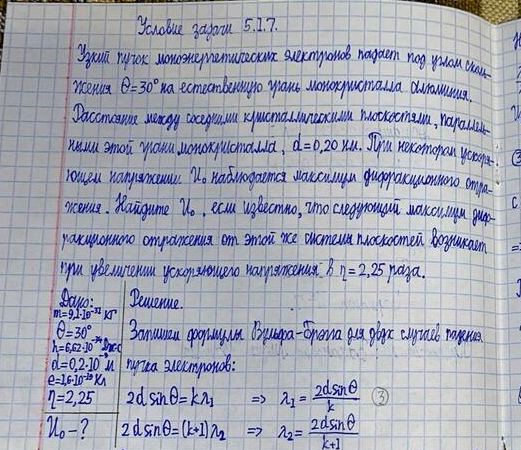 Условие задачи 5.1.7.
Узкий пучок моноэнергетических электронов падает под углом сколь-
жения θ=30° на естественную грань монокристалла алюминия.
Расстояние между соседними кристаллическими плоскостями, параллель-
ными этой грани монокристалла, d=0,20 нм. При некотором ускоря-
ющем напряжении U₀ наблюдается максимум дифракционного отра-
жения. Найдите U₀, если известно, что следующий максимум диф-
ракционного отражения от этой же системы плоскостей возникает
при увеличении ускоряющего напряжения в η=2,25 раза.
Дано:
m=9,1·10⁻³¹ кг
θ=30°
h=6,62·10⁻³⁴ Дж·с
d=0,2·10⁻⁹ м
e=1,6·10⁻¹⁹ Кл
η=2,25
U₀-?
Решение.
Запишем формулы Вульфа-Брэгга для двух случаев падения
пучка электронов:
2d sinθ=kλ₁ => λ₁=2d sinθ/k ③
2d sinθ=(k+1)λ₂ => λ₂=2d sinθ/k+1